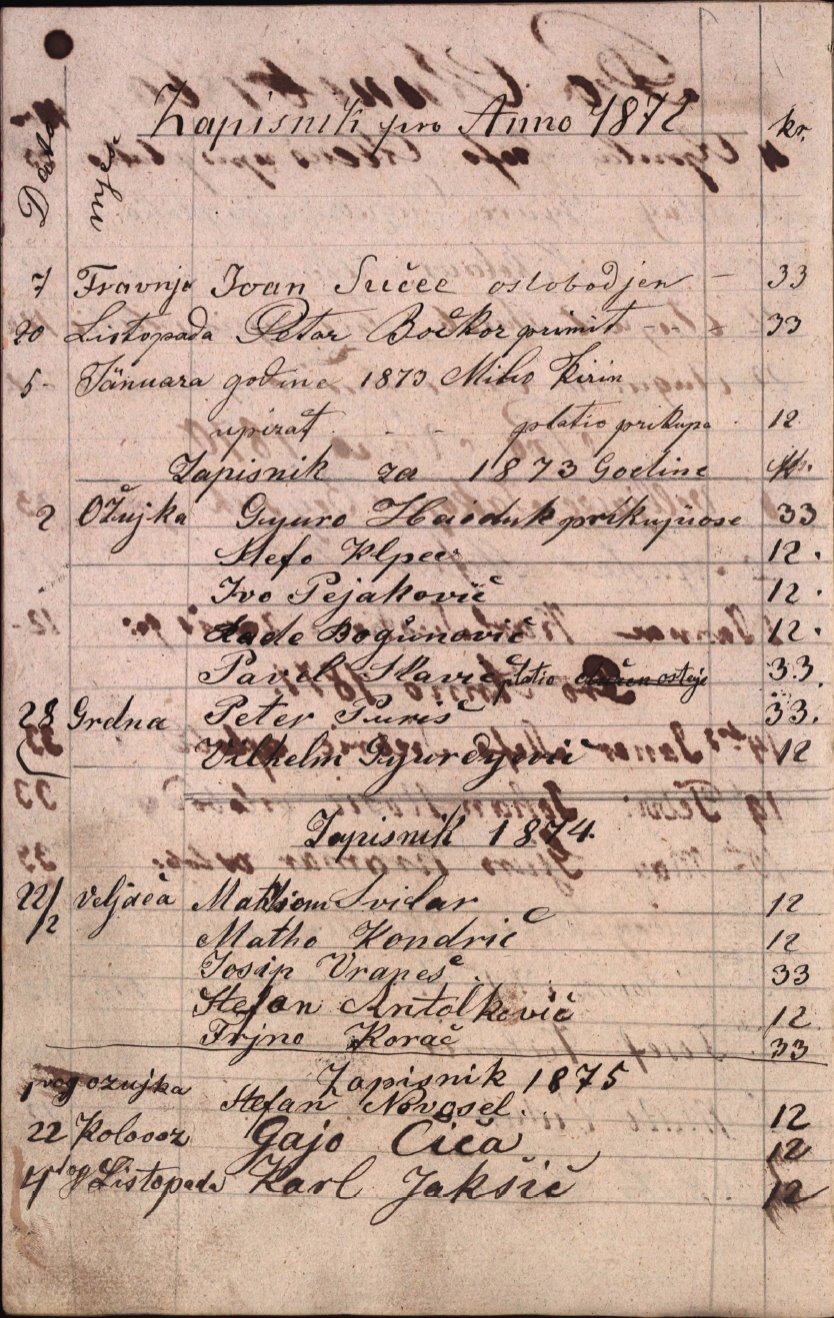 Zapisnik pro Anno 1872
kr.
Dana
7 Travnja Ivan Sučec oslobodjen - 33
20 Listopada Petar Bočkor primit - 33
5 - Jänuara godine 1873 Milio Kirin
upirat - - platio prikupa 12
Zapisnik za 1873 Godine kr.
2 Ožujka Gyuro Haiduk prikupuose 33
Mefo Klpec 12.
Ivo Pejaković 12.
Rade Bogunović 12.
Pavil Slavić platio dužan ostaje 33
28 Grdna Peter Puriš 33.
Vilhelm Gyurdyević 12
Zapisnik 1874.
22/2 Veljača Maksiom Svilar 12
Matho Kondrić 12
Josip Vraneš 33
Stefan Antolković 12
Trjno Korać 33
Zapisnik 1875
1vog ožujka Stefan Novosel. 12
22 Kolovoz Gajo Čiča 12
4tog Listopada Karl Jakšić 12